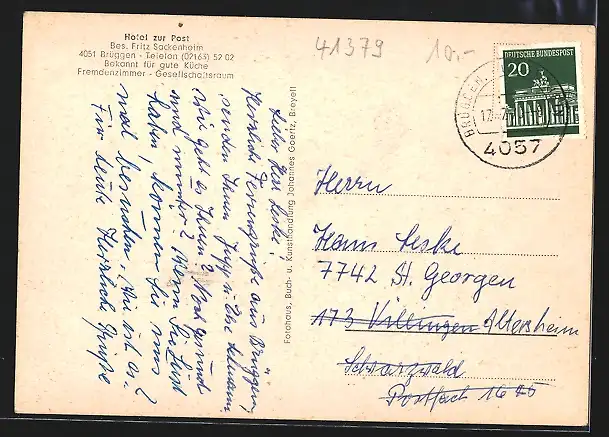 Hotel zur Post
Bes. Fritz Sackenheim
4051 Brüggen - Telefon (02163) 52 02
Bekannt für gute Küche
Fremdenzimmer - Gesellschaftsraum
41379
10,-
DEUTSCHE BUNDESPOST
20
BRÜGGEN
4057
Lieber Herr Leske!
Herzliche Feriengrüße aus Brüggen,
senden Ihnen Jupp u. Ilse
Wie geht es Ihnen? Noch gesund
und munter? Wenn Sie Lust
haben, kommen Sie uns
mal besuchen,
Für heute Herzliche Grüße
Fotohaus, Buch- u. Kunsthandlung Johannes Goertz, Breyell
Herrn
Hans Leske
7742 St. Georgen
173 Villingen Altersheim
Schwarzwald
Postfach 1640